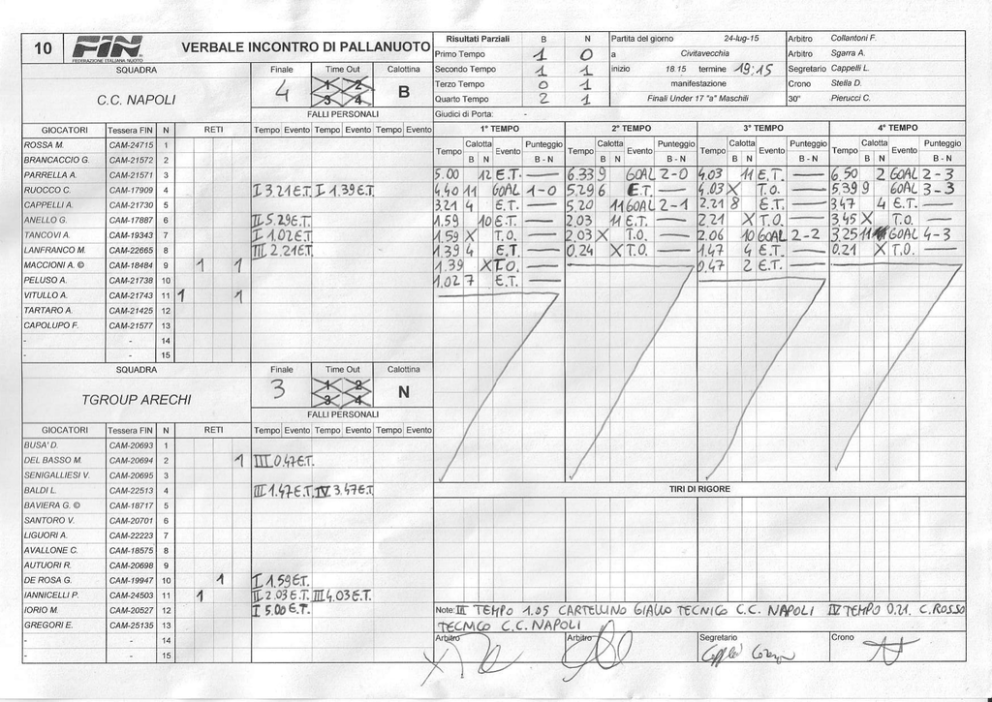 10 FIN VERBALE INCONTRO DI PALLANUOTO
FEDERAZIONE ITALIANA NUOTO
Risultati Parziali B N
Primo Tempo 1 0
Secondo Tempo 1 1
Terzo Tempo 0 1
Quarto Tempo 2 1
Giudici di Porta: -
Partita del giorno 24-lug-15
a Civitavecchia
inizio 18.15 termine 19:15
manifestazione
Finali Under 17 "a" Maschili
Arbitro Collantoni F.
Arbitro Sgarra A.
Segretario Cappelli L.
Crono Stella D.
30" Pierucci C.
SQUADRA Finale Time Out Calottina
C.C. NAPOLI 4 1 2 3 4 B
FALLI PERSONALI
GIOCATORI Tessera FIN N RETI Tempo Evento Tempo Evento Tempo Evento
ROSSA M. CAM-24715 1
BRANCACCIO G. CAM-21572 2
PARRELLA A. CAM-21571 3
RUOCCO C. CAM-17909 4 I 3.21 E.T. I 1.39 E.T.
CAPPELLI A. CAM-21730 5
ANELLO G. CAM-17887 6 II 5.29 E.T.
TANCOVI A. CAM-19343 7 I 1.02 E.T.
LANFRANCO M. CAM-22665 8 III 2.21 E.T.
MACCIONI A. © CAM-18484 9 1 1
PELUSO A. CAM-21738 10
VITULLO A. CAM-21743 11 1 1
TARTARO A. CAM-21425 12
CAPOLUPO F. CAM-21577 13
- - 14
- - 15
SQUADRA Finale Time Out Calottina
TGROUP ARECHI 3 1 2 3 4 N
FALLI PERSONALI
GIOCATORI Tessera FIN N RETI Tempo Evento Tempo Evento Tempo Evento
BUSA' D. CAM-20693 1
DEL BASSO M. CAM-20694 2 1 III 0.47 E.T.
SENIGALLIESI V. CAM-20695 3
BALDI L. CAM-22513 4 III 1.47 E.T. IV 3.47 E.T.
BAVIERA G. © CAM-18717 5
SANTORO V. CAM-20701 6
LIGUORI A. CAM-22223 7
AVALLONE C. CAM-18575 8
AUTUORI R. CAM-20698 9
DE ROSA G. CAM-19947 10 1 I 1.59 E.T.
IANNICELLI P. CAM-24503 11 1 II 2.03 E.T. III 4.03 E.T.
IORIO M. CAM-20527 12 I 5.00 E.T.
GREGORI E. CAM-25135 13
- - 14
- - 15
1° TEMPO
Tempo Calotta B N Evento Punteggio B - N
5.00 12 E.T. —
4.40 11 GOAL 1-0
3.21 4 E.T. —
1.59 10 E.T. —
1.59 X T.O. —
1.39 4 E.T. —
1.39 X T.O. —
1.02 7 E.T. —
2° TEMPO
Tempo Calotta B N Evento Punteggio B - N
6.33 9 GOAL 2-0
5.29 6 E.T. —
5.20 11 GOAL 2-1
2.03 11 E.T. —
2.03 X T.O. —
0.24 X T.O. —
3° TEMPO
Tempo Calotta B N Evento Punteggio B - N
4.03 11 E.T. —
4.03 X T.O. —
2.21 8 E.T. —
2.21 X T.O. —
2.06 10 GOAL 2-2
1.47 4 E.T. —
0.47 2 E.T. —
4° TEMPO
Tempo Calotta B N Evento Punteggio B - N
6.50 2 GOAL 2-3
5.39 9 GOAL 3-3
3.47 4 E.T. —
3.45 X T.O. —
3.25 11 GOAL 4-3
0.21 X T.O. —
TIRI DI RIGORE
Note: III TEMPO 1.05 CARTELLINO GIALLO TECNICO C.C. NAPOLI IV TEMPO 0.21. C. ROSSO
TECNICO C.C. NAPOLI
Arbitro Arbitro Segretario Crono